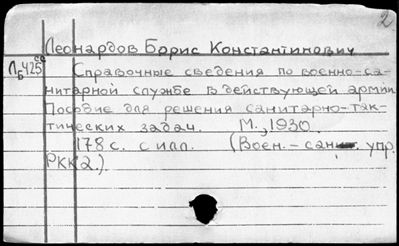 2
Леонардов Борис Константинович
Справочные сведения по военно-са-
нитарной службе в действующей армии
Пособие для решения санитарно-так-
тических задач. М., 1930.
178 с. с илл. (Воен. – сани. упр.
РККА.).